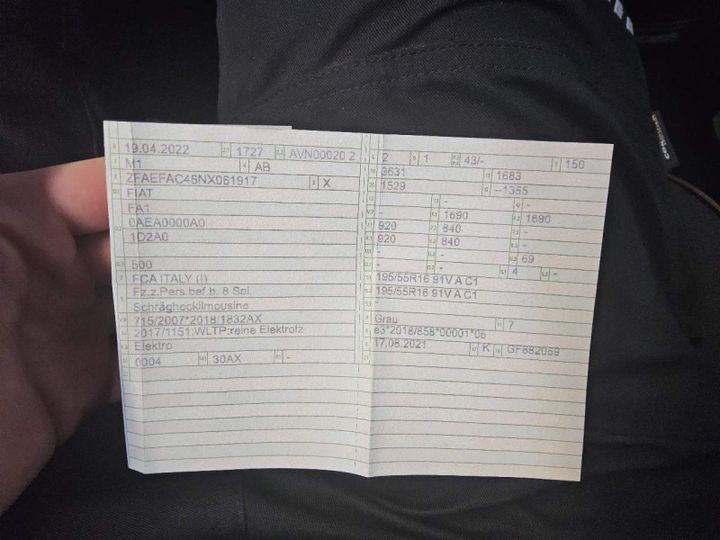 19.04.2022 1727 AVN00020 2
M1 AB
ZFAEFAC46NX061917 X
FIAT
FA1
0AEA0000A0
1D2A0
500
FCA ITALY (I)
Fz.z.Pers.bef.b. 8 Spl.
Schräghecklimousine
715/2007*2018/1832AX
2017/1151;WLTP;reine Elektrofz
Elektro
0004 30AX -
2 1 43/- 150
3631 1683
1529 --1365
- -
- 1690 1690
920 840 -
920 840 -
- - 69
- 4 -
195/55R16 91V A C1
195/55R16 91V A C1
-
Grau 7
e3*2018/858*00001*06
17.08.2021 K GF882069